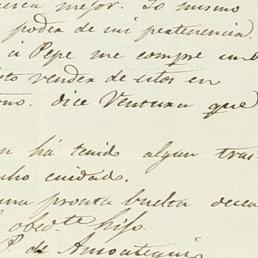 mejor. Lo mismo
poder de mi pertenencia.
á Pepe me compre un
vender de estos en
dice Ventura que
ha tenido algun tras
cuidado.
una pronta buelta desea
obed.te hijo
P. de Amoategui